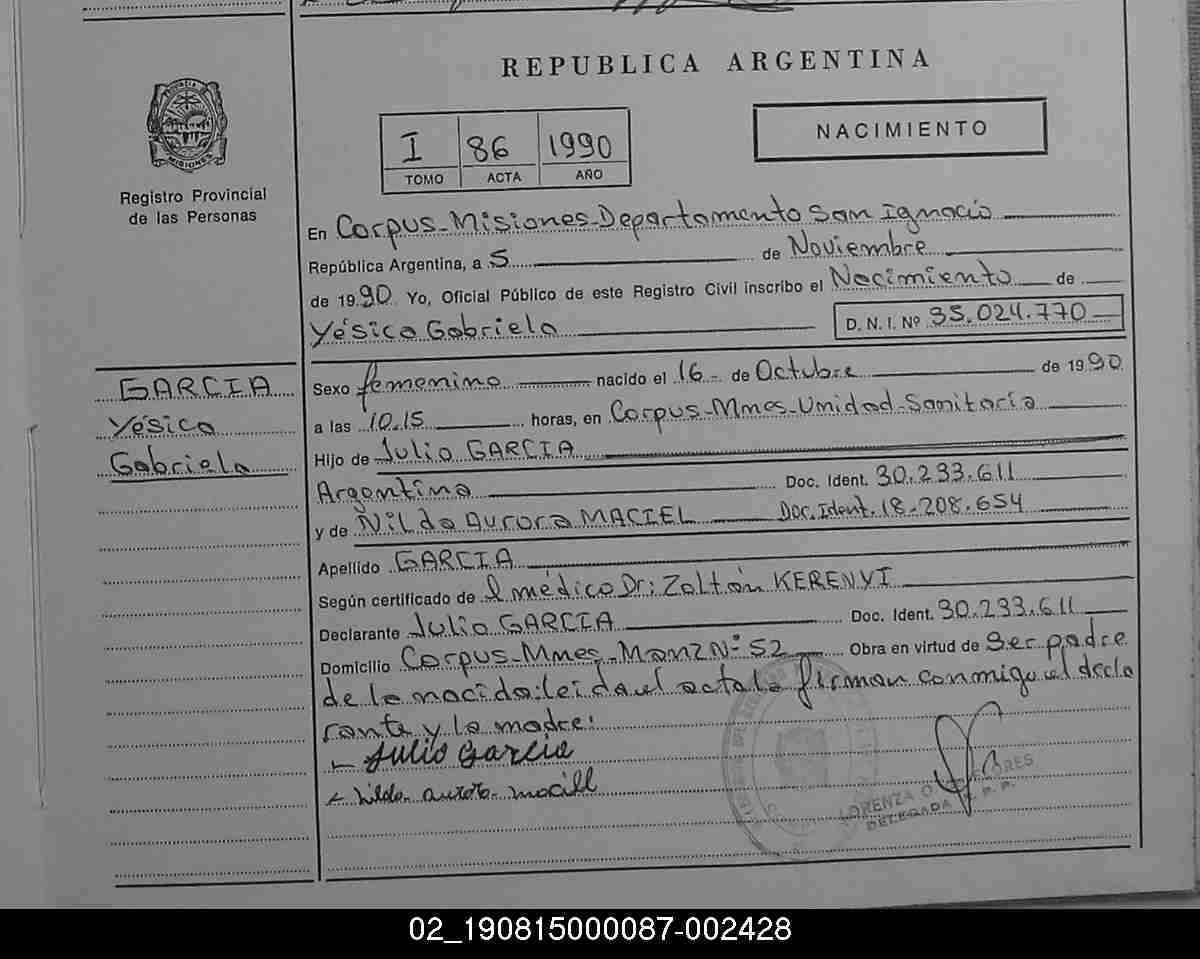 REPUBLICA ARGENTINA
PROVINCIA DE
MISIONES
Registro Provincial
de las Personas
I 86 1990
TOMO ACTA AÑO
NACIMIENTO
En Corpus-Misiones-Departamento San Ignacio
República Argentina, a 5 de Noviembre
de 1990 Yo, Oficial Público de este Registro Civil inscribo el Nacimiento de
Yésica Gabriela D. N. I. Nº 35.024.770
GARCIA
Yésica
Gabriela
Sexo femenino nacido el 16 - de Octubre de 1990
a las 10.15 horas, en Corpus-Mnes-Unidad-Sanitaria
Hijo de Julio GARCIA
Argentina Doc. Ident. 30.233.611
y de Nilda Aurora MACIEL Doc. Ident. 18.208.654
Apellido GARCIA
Según certificado de el médico Dr: Zoltán KERENYI
Declarante Julio GARCIA Doc. Ident. 30.233.611
Domicilio Corpus-Mnes-Manz Nº 52 Obra en virtud de Ser padre
de la nacida: leida el acta la firman conmigo el decla
rante y la madre:
Julio Garcia
LORENZA
DELEGADA R. P. P.
02_190815000087-002428